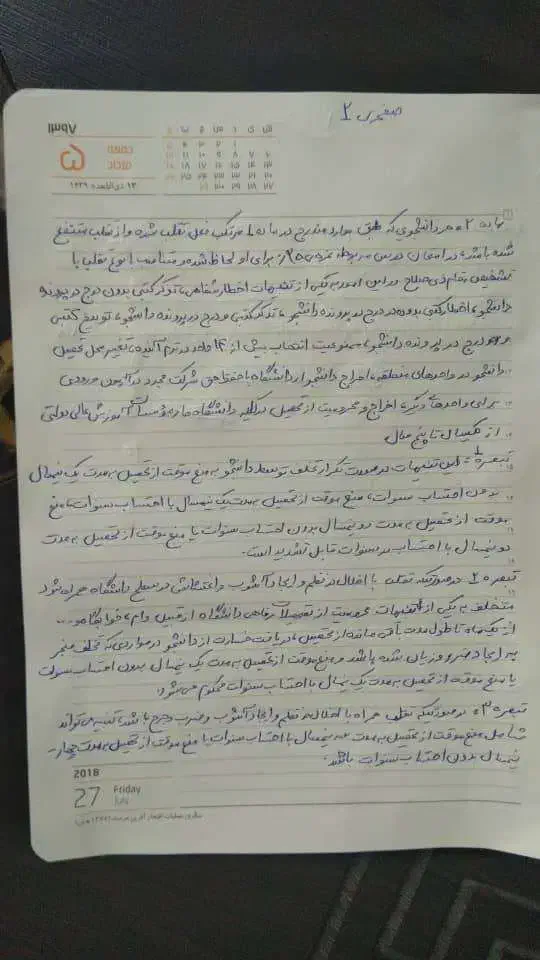 صفحه ی ۲
۱۳۹۷
جمعه
۵
مرداد
۱۳ ذی‌القعده ۱۴۳۹
ماده ۲: هر دانشجوی که طبق موارد مندرج در ماده ۱ مرتکب فعل تقلب شده و از تقلب منتفع
شده باشد، در امتحان درس مربوطه نمره‌ی ۰/۲۵ برای او لحاظ شده و متناسب با نوع تقلب با
تشخیص مقام ذی صلاح در این امور به یکی از تنبیهات اخطار شفاهی، تذکر کتبی بدون درج در پرونده
دانشجو، اخطار کتبی بدون درج در پرونده دانشجو، تذکر کتبی و درج در پرونده دانشجو، توبیخ کتبی
و درج در پرونده دانشجو، ممنوعیت انتخاب بیش از ۱۴ واحد در ترم آینده، تغییر محل تحصیل
دانشجو در واحدهای منطقه، اخراج دانشجو از دانشگاه با حفظ حق شرکت مجدد در آزمون ورودی
برای واحدهای دیگر، اخراج و محرومیت از تحصیل در کلیه دانشگاه ها و مؤسسات آموزش عالی دولتی
از یکسال تا پنج سال
تبصره ۱: این تنبیهات در صورت تکرار تخلف توسط دانشجو به منع موقت از تحصیل به مدت یک نیمسال
بدون احتساب سنوات، منع موقت از تحصیل به مدت یک نیمسال با احتساب سنوات، منع
موقت از تحصیل به مدت دو نیمسال بدون احتساب سنوات یا منع موقت از تحصیل به مدت
دو نیمسال با احتساب در سنوات قابل تشدید است.
تبصره ۲: در صورتیکه تقلب با اخلال در نظم و ایجاد آشوب و اغتشاش در سطح دانشگاه همراه شود
متخلف به یکی از تنبیهات محرومیت از تسهیلات رفاهی دانشگاه از قبیل وام، خوابگاه و...
از یک ماه تا طول مدت باقی مانده از تحصیل، دریافت خسارت از دانشجو در مواردی که تخلف منجر
به ایجاد ضرر و زیان شده باشد و منع موقت از تحصیل به مدت یک نیمسال بدون احتساب سنوات
یا منع موقت از تحصیل به مدت یک نیمسال با احتساب سنوات محکوم می‌شود.
تبصره ۳: در صورتیکه تقلب همراه با اخلال در نظم و ایجاد آشوب و ضرب و جرح باشد، تنبیه می‌تواند
شامل منع موقت از تحصیل به مدت سه نیمسال با احتساب سنوات یا منع موقت از تحصیل به مدت چهار
نیمسال بدون احتساب سنوات باشد.
2018
27 Friday
July